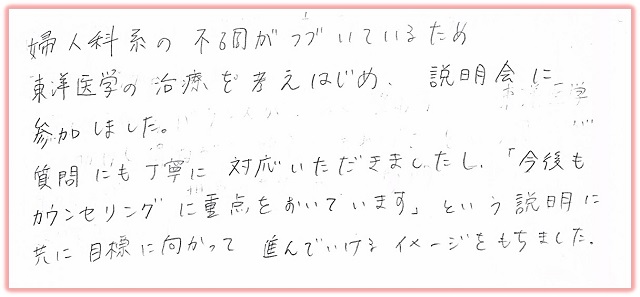 婦人科系の不調がつづいているため
東洋医学の治療を考えはじめ、説明会に
参加しました。
質問にも丁寧に対応いただきましたし、「今後も
カウンセリングに重点をおいています」という説明に
共に目標に向かって進んでいけるイメージをもちました。